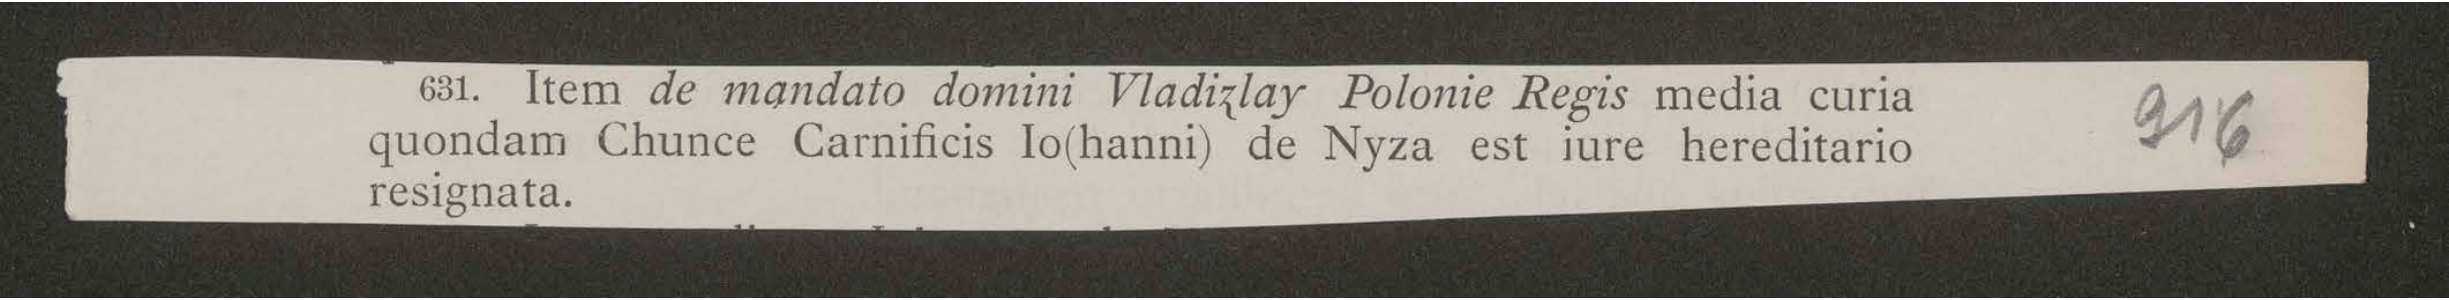 631. Item de mandato domini Vladiʒlay Polonie Regis media curia 916
quondam Chunce Carnificis Io(hanni) de Nyza est iure hereditario
resignata.